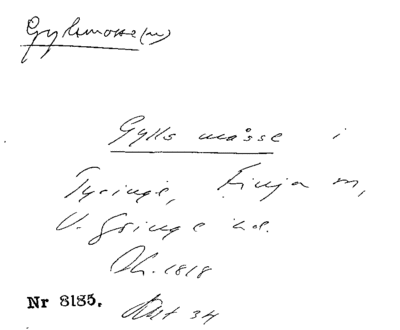 Gyllsmosse(n)
Gylls måsse i
Tyringe, Finja m,
V. Göinge hd.
Ak. 1818
Nr 8185. Akt 34